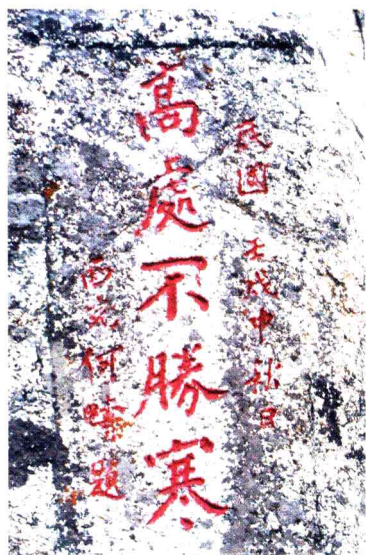 民國壬戌中秋日
高處不勝寒
何 題